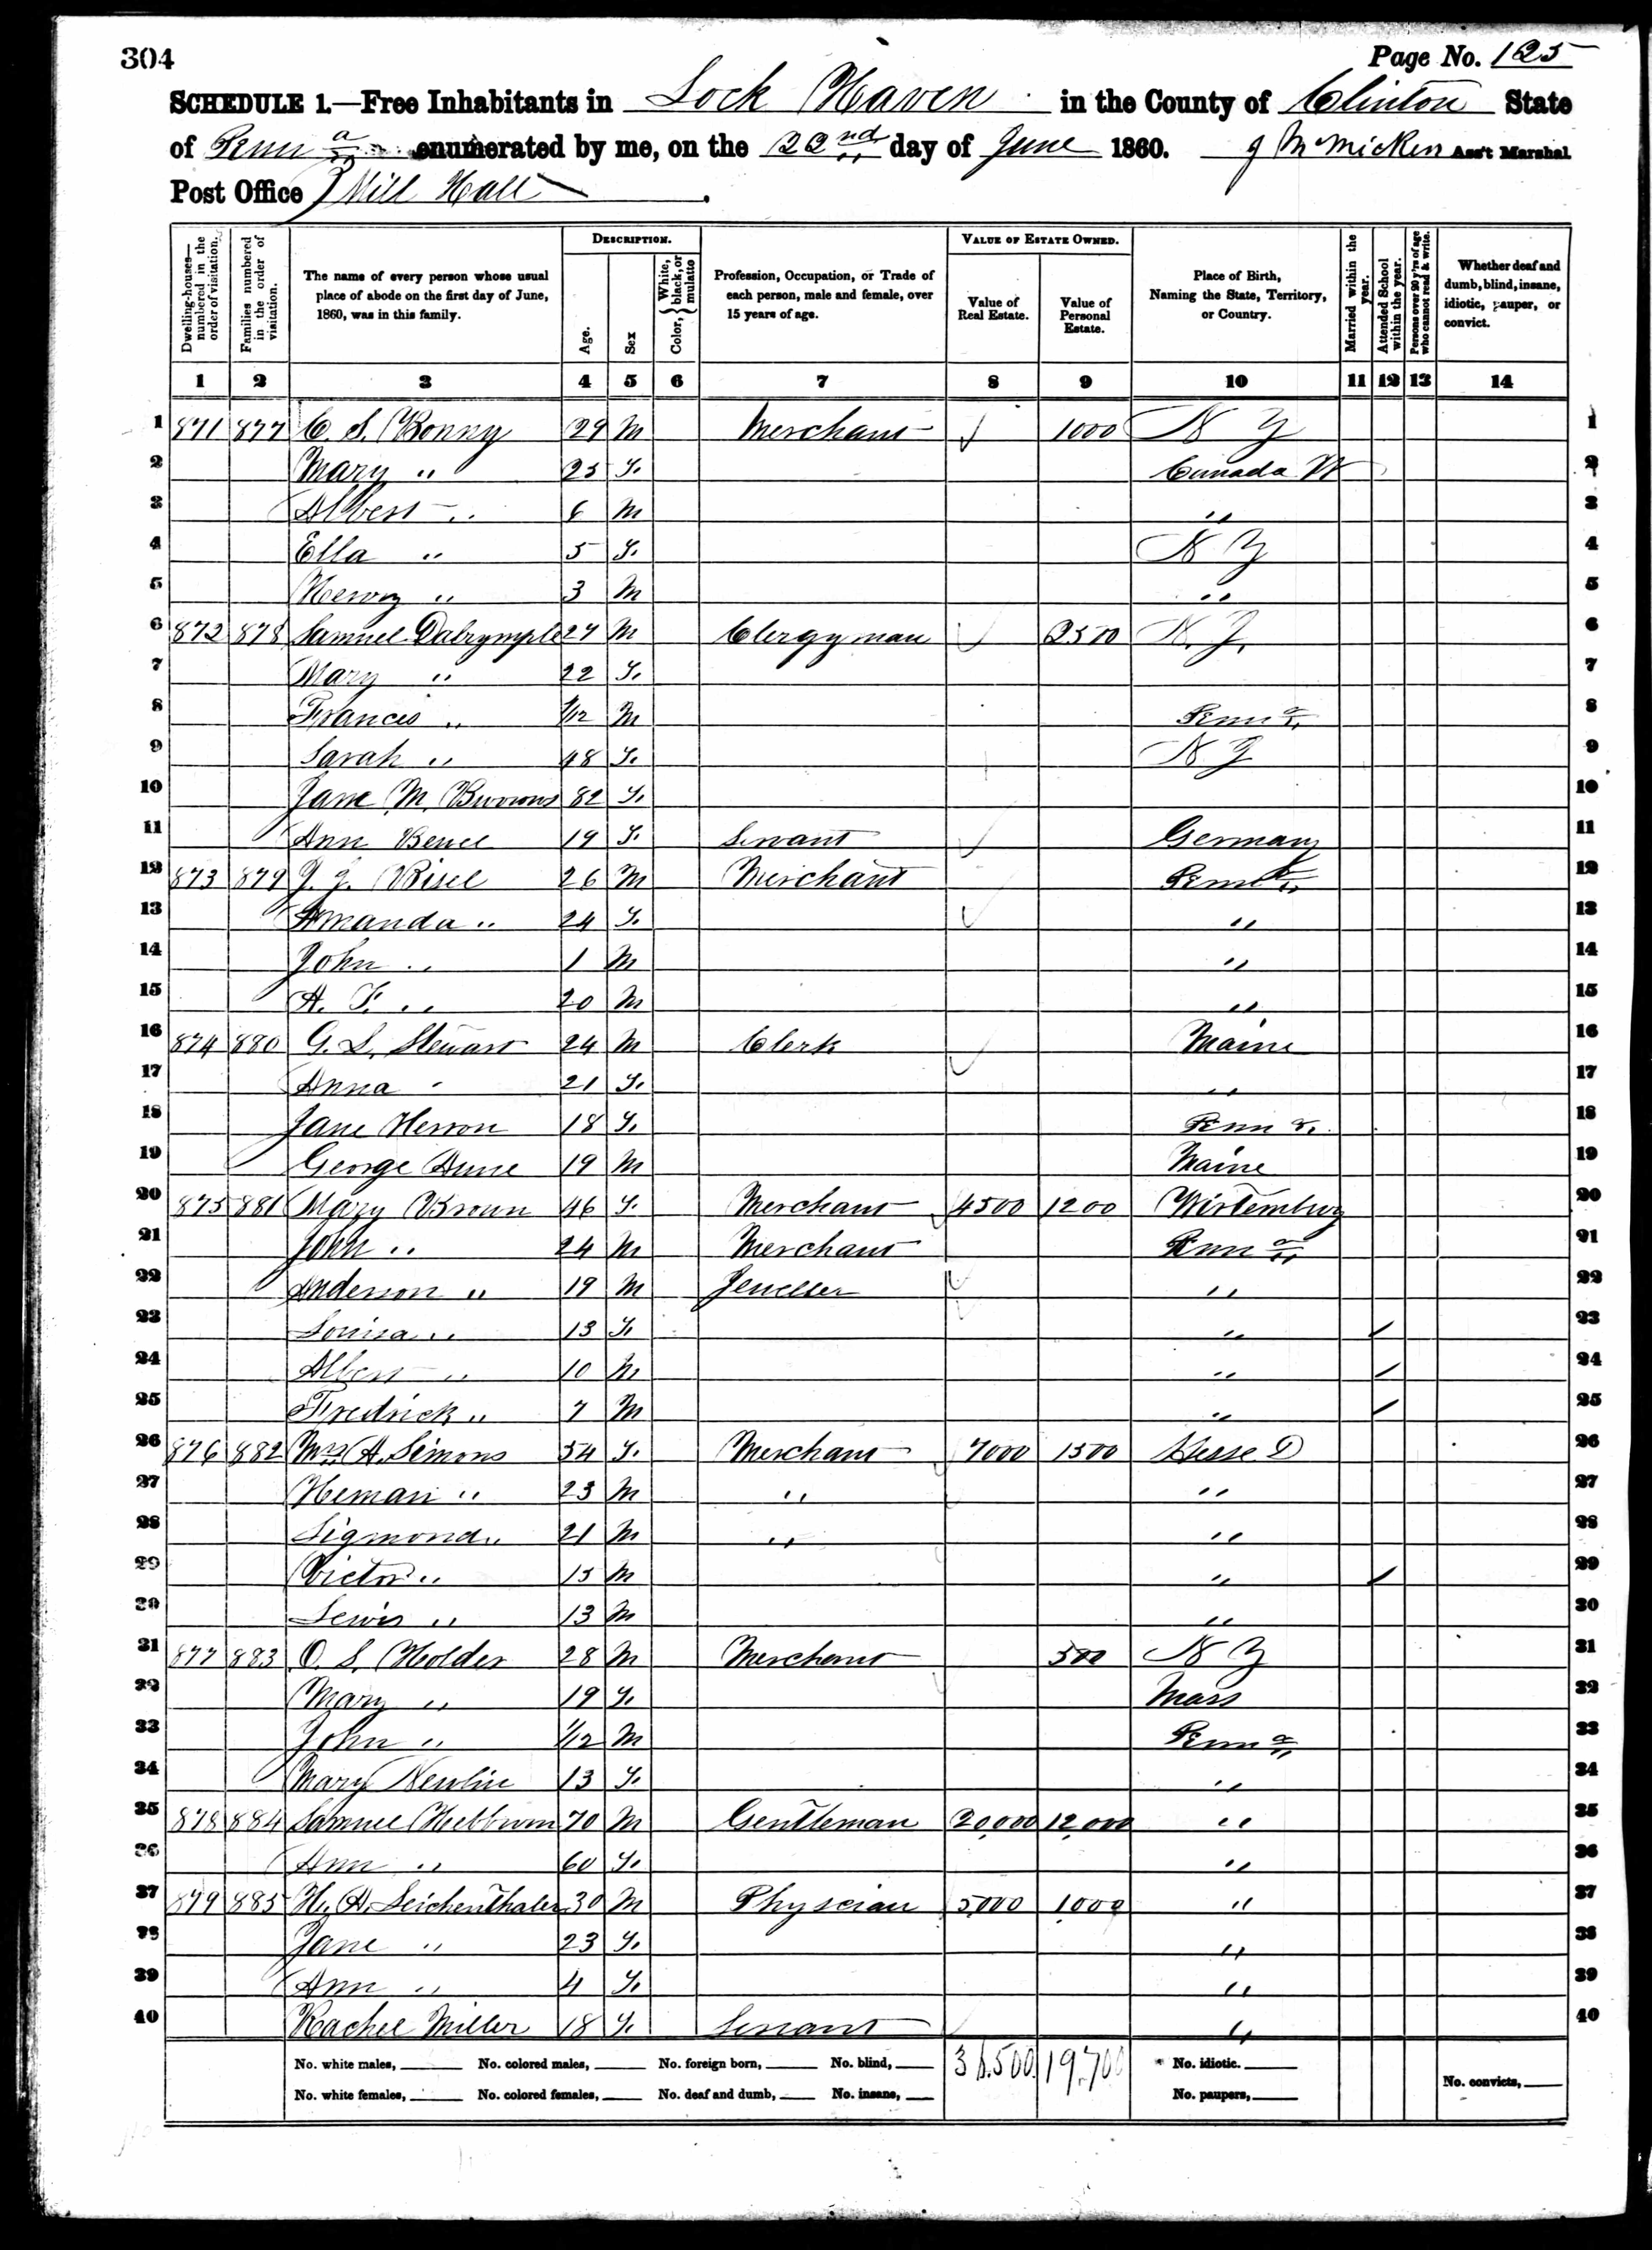 304
Page No. 125
SCHEDULE 1.—Free Inhabitants in Lock Haven in the County of Clinton State
of Penna enumerated by me, on the 22nd day of June 1860. J McMicken Ass't Marshal
Post Office Mill Hall
Dwelling-houses—numbered in the order of visitation.
Families numbered in the order of visitation.
The name of every person whose usual place of abode on the first day of June, 1860, was in this family.
DESCRIPTION.
Age.
Sex
Color, {White, black, or mulatto}
Profession, Occupation, or Trade of each person, male and female, over 15 years of age.
VALUE OF ESTATE OWNED.
Value of Real Estate.
Value of Personal Estate.
Place of Birth, Naming the State, Territory, or Country.
Married within the year.
Attended School within the year.
Persons over 20 y'rs of age who cannot read & write.
Whether deaf and dumb, blind, insane, idiotic, pauper, or convict.
1 2 3 4 5 6 7 8 9 10 11 12 13 14
1 871 877 C. S. Bonny 29 M Merchant 1000 N Y 1
2 Mary " 25 F. Canada W 2
3 Albert " 6 M " 3
4 Ella " 5 F. N Y 4
5 Henry " 3 M " 5
6 872 878 Samuel Dalrymple 27 M Clergyman 2500 N. J. 6
7 Mary " 22 F. 7
8 Frances " 1/12 M Penna 8
9 Sarah " 48 F. N J 9
10 Jane M. Burrows 82 F. 10
11 Ann Bence 19 F. Servant Germany 11
12 873 879 J. J. Bisel 26 M Merchant Penna 12
13 Amanda " 24 F. " 13
14 John " 1 M " 14
15 A. F. " 20 M " 15
16 874 880 G. L. Stewart 24 M Clerk Maine 16
17 Anna " 21 F. " 17
18 Jane Herron 18 F. Penna. 18
19 George 19 M Maine 19
20 875 881 Mary Brown 46 F. Merchant 4500 1200 Wirtemburg 20
21 John " 24 M Merchant Penna 21
22 Anderson " 19 M Jeweller " 22
23 Louisa " 13 F. " / 23
24 Albert " 10 M " / 24
25 Fredrick " 7 M " / 25
26 876 882 Mrs A. Simons 54 F. Merchant 7000 1500 Hesse D 26
27 Heman " 23 M " " 27
28 Sigmond " 21 M " " 28
29 Victor " 15 M " / 29
30 Lewis " 13 M " 30
31 877 883 O. S. Holder 28 M Merchant 500 N Y 31
32 Mary " 19 F. Mass 32
33 John " 1/12 M Penna 33
34 Mary Newlin 13 F. " 34
35 878 884 Samuel Hebburn 70 M Gentleman 20,000 12,000 " 35
36 Ann " 60 F. " 36
37 879 885 H. A. Leichenthaler 30 M Physcian 5,000 1,000 " 37
38 Jane " 23 F. " 38
39 Ann " 4 F. " 39
40 Rachel Miller 18 F. Servant " 40
No. white males, No. colored males, No. foreign born, No. blind, 36.500 19.700 No. idiotic.
No. white females, No. colored females, No. deaf and dumb, No. insane, No. paupers, No. convicts,